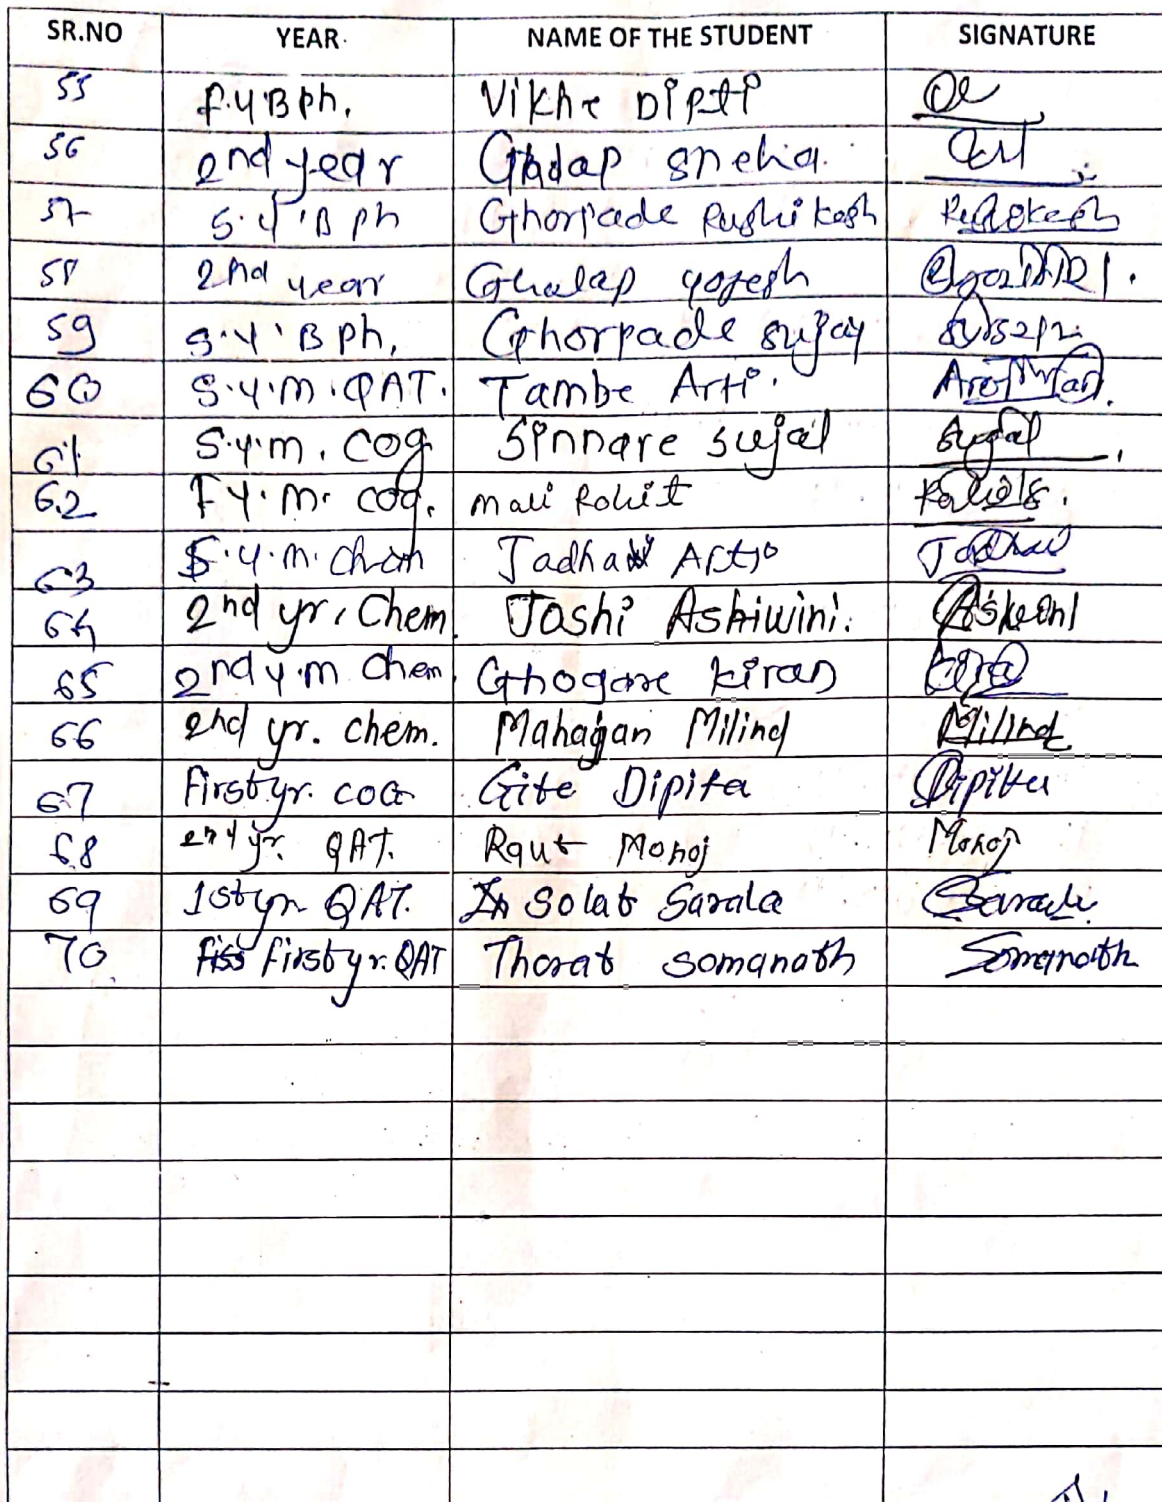 SR.NO YEAR NAME OF THE STUDENT SIGNATURE
55 F.Y B Ph. Vikhe Dipti
56 2nd year Ghadap Sneha.
57 S.Y B Ph Ghorpade Rushikesh
58 2nd year Gholap Yogesh
59 S.Y B Ph. Ghorpade Sujay
60 S.Y.M. QAT. Tambe Arti.
61 S.Y.M. COG Sinnare Sujal Sujal
62 F.Y.M. COG. Mali Rohit
63 S.Y.M. Chem Jadhav Arti Jadhav
64 2nd yr. Chem. Joshi Ashiwini.
65 2nd Y.M Chem. Ghogare Kiran Kiran
66 2nd yr. Chem. Mahagan Milind Milind
67 First yr. COG Gite Dipita Dipita
68 2nd yr. QAT. Raut Monoj Monoj
69 1st yr QAT. Solat Sarala Sarala
70 First yr. QAT Thorat Somanath Somanath